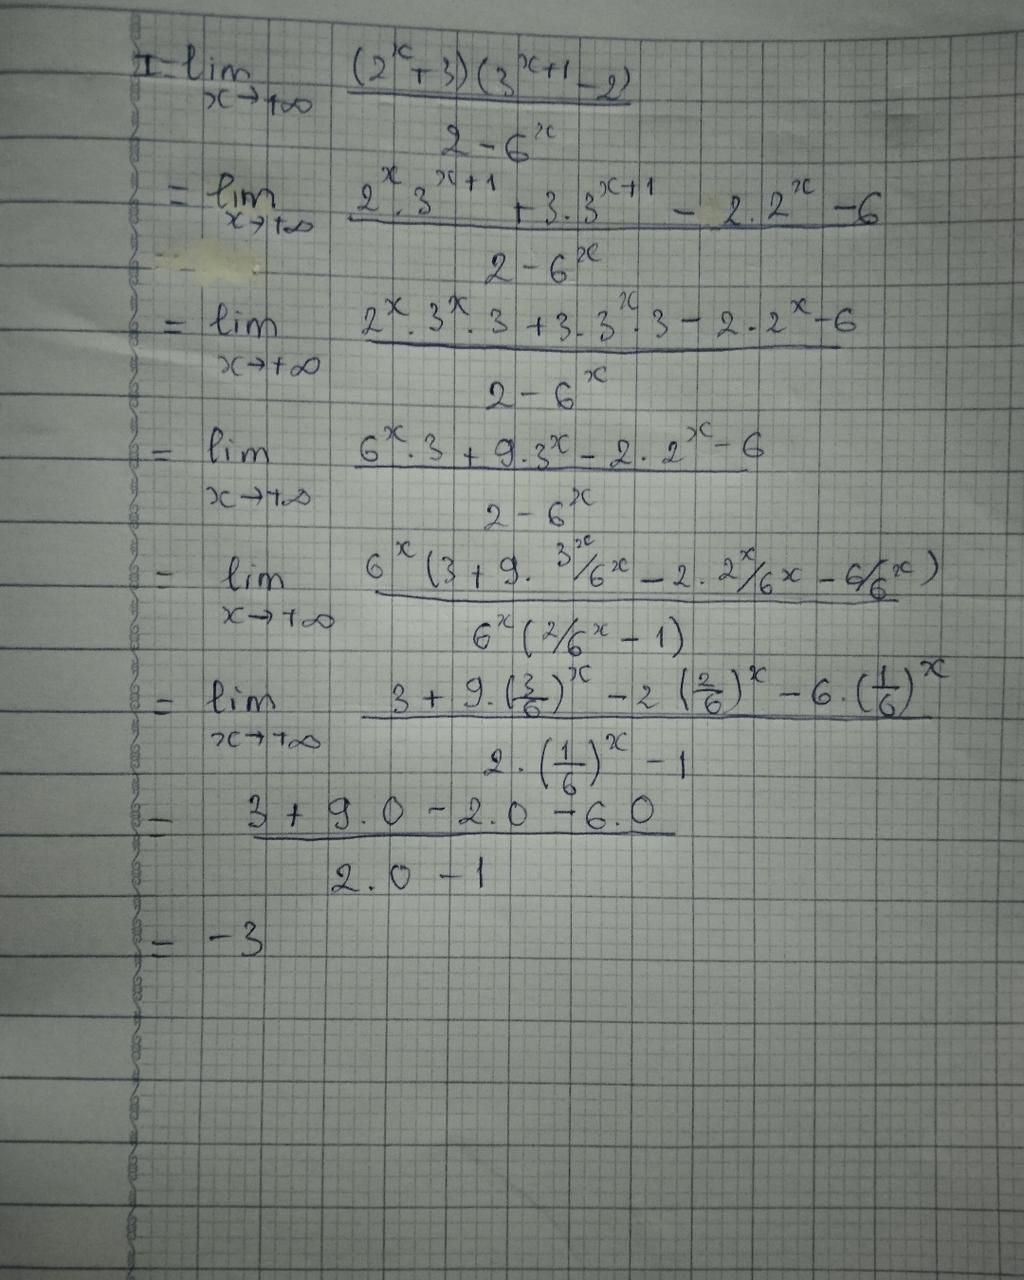 I = lim x→+∞ (2^x + 3)(3^{x+1} - 2) / 2 - 6^x
= lim x→+∞ 2^x . 3^{x+1} + 3 . 3^{x+1} - 2 . 2^x - 6 / 2 - 6^x
= lim x→+∞ 2^x . 3^x . 3 + 3 . 3^x . 3 - 2 . 2^x - 6 / 2 - 6^x
= lim x→+∞ 6^x . 3 + 9 . 3^x - 2 . 2^x - 6 / 2 - 6^x
= lim x→+∞ 6^x (3 + 9 . 3^x/6^x - 2 . 2^x/6^x - 6/6^x) / 6^x (2/6^x - 1)
= lim x→+∞ 3 + 9 . (3/6)^x - 2 (2/6)^x - 6 . (1/6)^x / 2 . (1/6)^x - 1
= 3 + 9 . 0 - 2 . 0 - 6 . 0 / 2 . 0 - 1
= -3